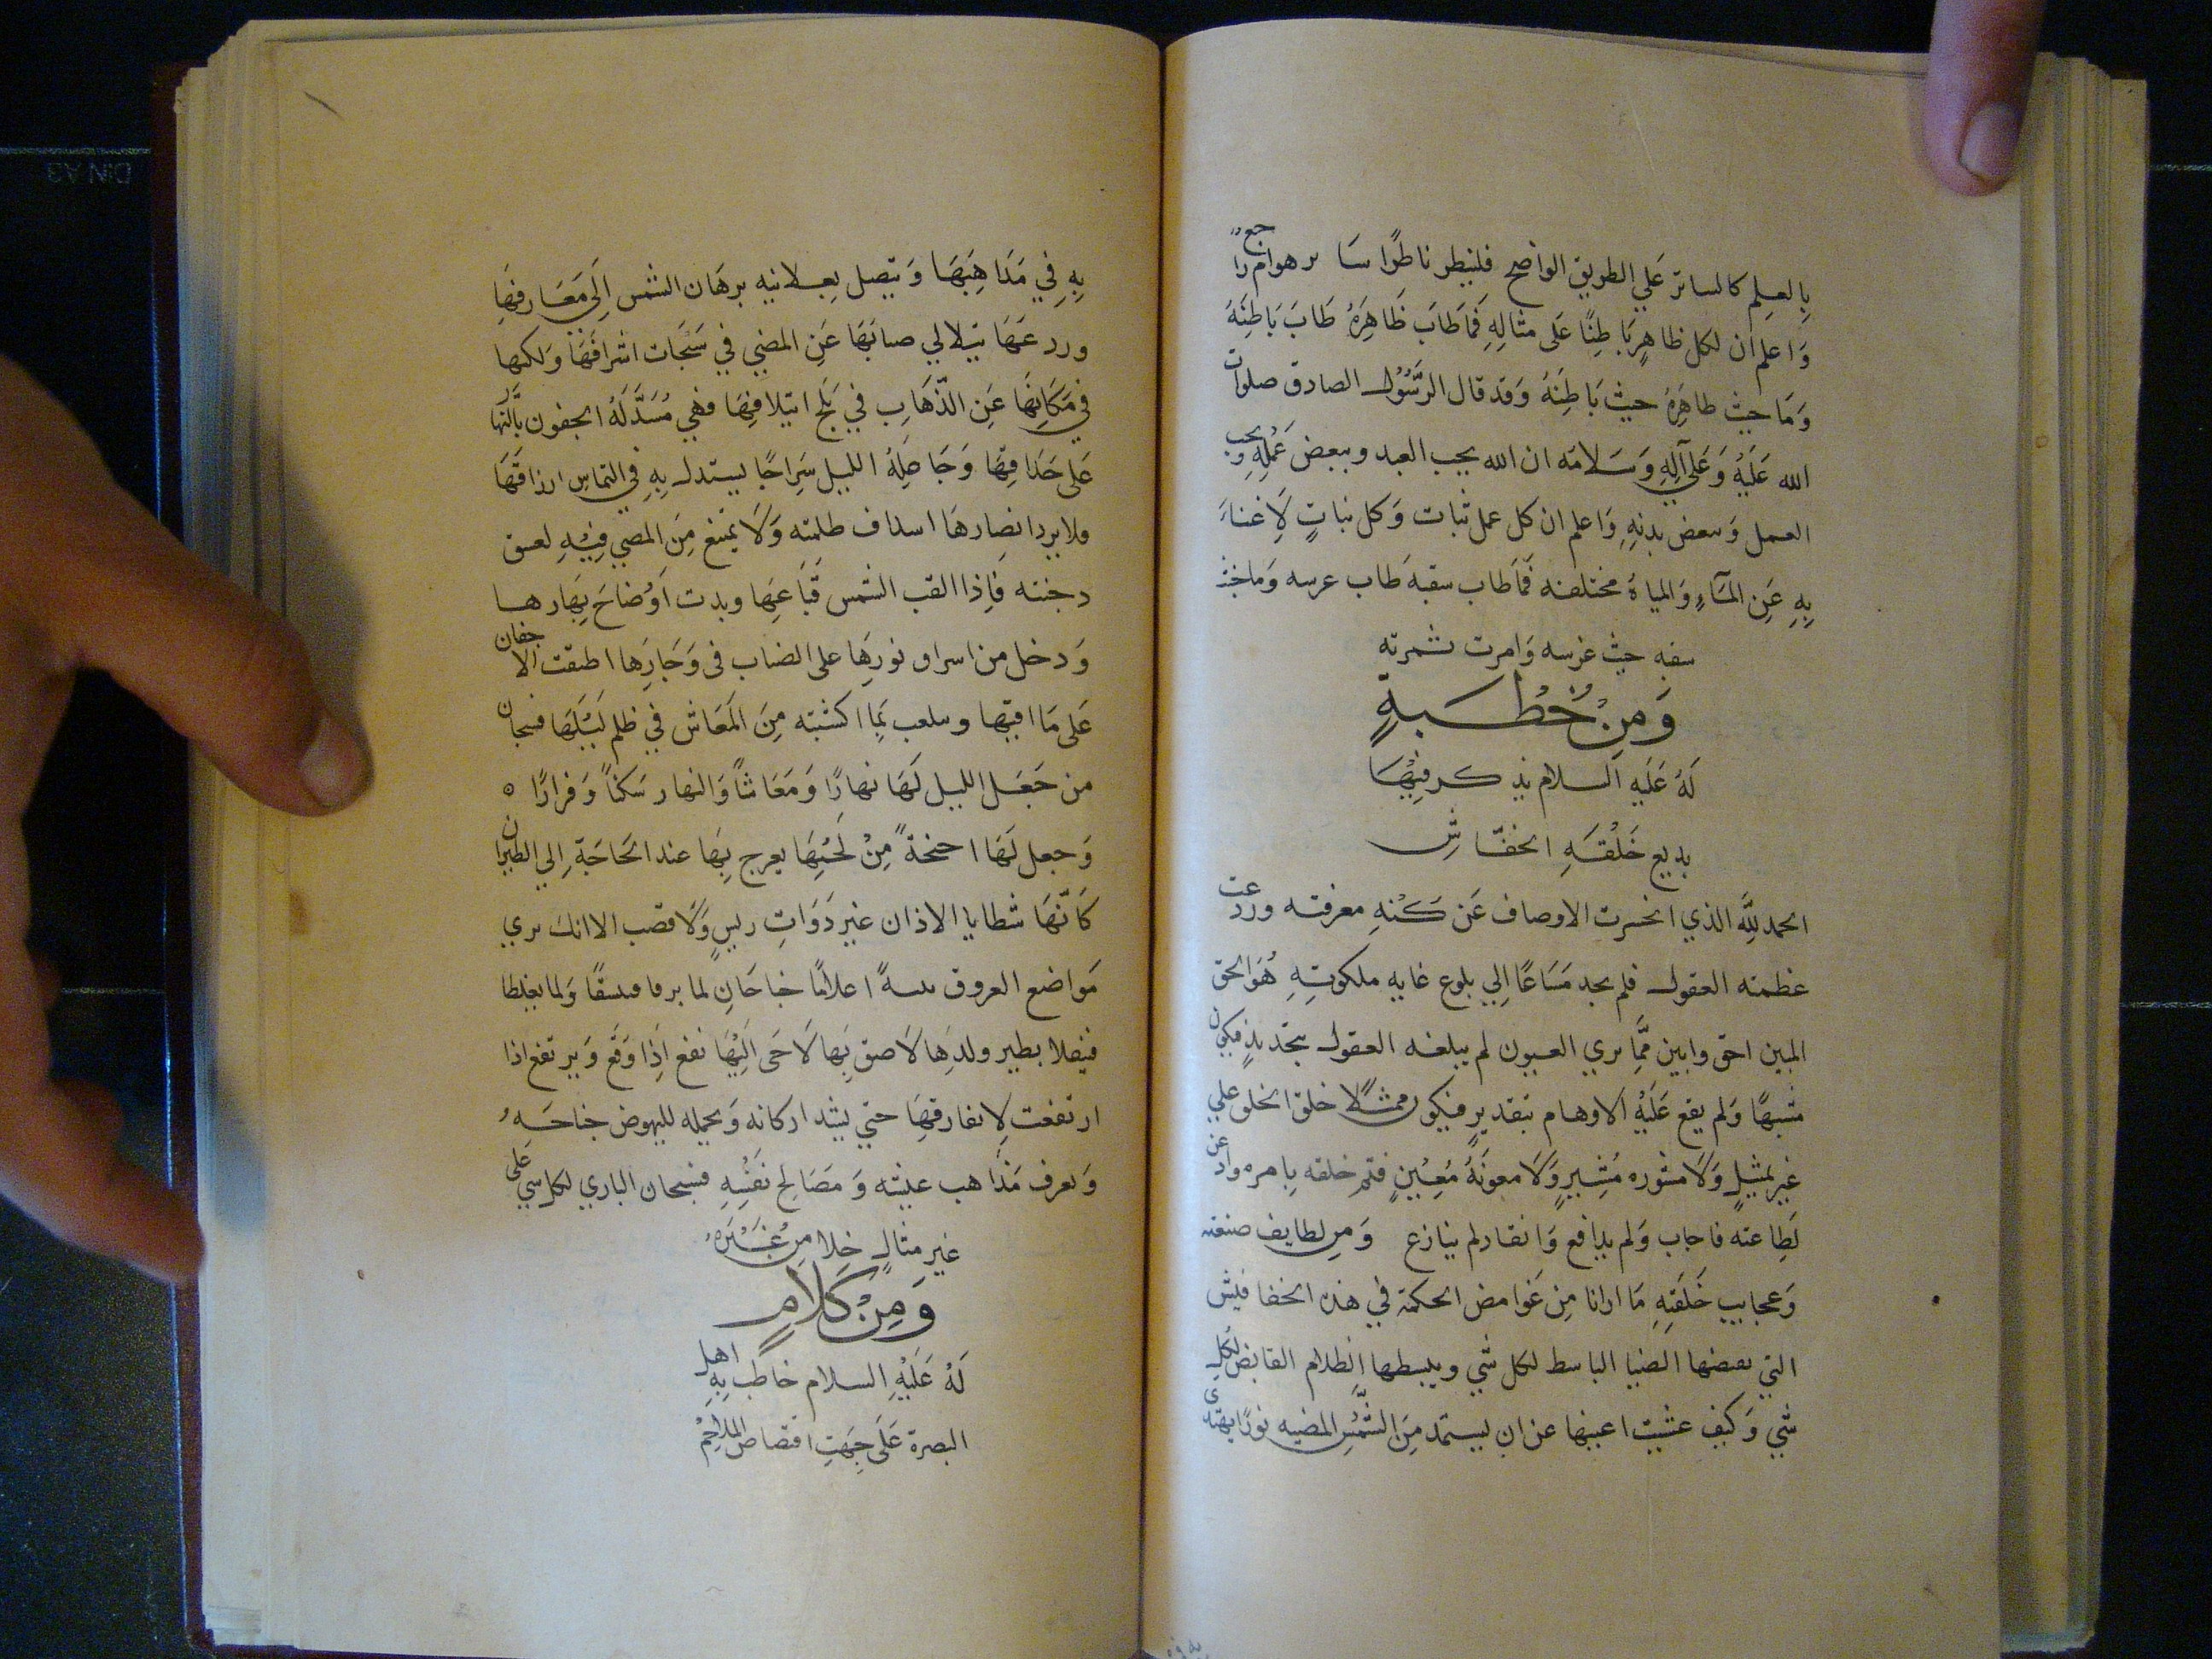 بِالعِلم كالسائر عَلي الطريق الواضح فلينظر ناظرًا سَا ير هوام رًا جع
وَاعلم ان لكل ظاهِرٍ بَاطِنًا عَلى مثالِهِ فمَا طَابَ ظَاهِرَهُ طَابَ بَاطِنَهُ
وَمَا خبث ظاهِرهُ خبث بَاطِنَهُ وَقد قال الرَّسُول الصادق صلوات
الله عَلَيهُ وَعَلي آلِهِ وَسَلامَه ان الله يحب العبد ويبغض عَمُلِهِ ويحب
العمل وَيبغض بدنِهِ وَاعلم ان كل عمل نبات وَكل نباتٍ لَا غناءَ
بِهِ عَنِ المَآءِ وَالمياهُ مختلفه فمَا طاب سقيهَ طَاب غرسه وَما خبث
سقيه خبث غرسه وَامرت ثمرته
وَمِنْ خُطْبَةٍ
لَهُ عَلَيهِ السلام يذكر فِيْهَا
بديع خَلْقَهِ الخفّاشِ
الحمد للَّهِ الذي انحسرت الاوصاف عَن كُنْهِ معرفته وردعت
عظمته العقول فلم يجد مَسَاغًا اِلي بلوغ غايه ملكوتِهِ هُوَ الحق
المبين احق وابين ممَّا يري العيون لم يبلغه العقول بتحديدٍ فيكون
مشبهًا وَلم يقع عَلَيْهِ الاوهام بتقديرٍ فيكون ممثلًا خلق الخلق علي
غير تمثيلٍ وَلَا مشوره مُشِيرٍ وَلَا معونَهُ مُعِيْنٍ فتم خلقه بِامره واذعن
لَطِاعته فاجاب وَلم يدافع وَانقاد لم ينازع وَمِن لطايف صنعته
وَعجايب خَلَقَتِهِ مَا ارانا مِن غَوامض الحكمة في هذه الخفافيش
التي يقبضها الضيا الباسط لكل شي ويبسطها الظلام القابض لكُل
شي وَكيف عشيت اعينها عن ان يستمد مِنَ الشَّمْسِ المضيه نورًا يهتدى
بِهِ فِي مَذَاهِبَهَا وَيتصِل بِعلانيه برهَان الشمس اِلَى مَعَارفهَا
وردعَهَا بتلالي ضيائهَا عَنِ المضي في سَبَحَات اشراقَهَا وَاكنها
في مَكَانِهَا عَنِ الذّهَابِ في بَلَجِ ايتلاقِهَا فهي مُسَدَّلَهُ الجفون بَالنهار
عَلى حَدَاقِهَا وَجَاعِلَهُ الليل سَرِاجًا يستدل بِهِ في التماس ارزاقَهَا
فلا يرد ابصارهَا اسداف ظلمته وَلَا يمتنع مِنَ المضي فِيْهِ لغسق
دجنته فَاِذا القت الشمس قَناعَهَا وبدت اَوْضاحَ نِهَارها
وَدخل من اشراق نورِهَا على الضباب في وَجَارِهَا اطبقت الاجفان
عَلى مَا اقيها وتبلغت بمِا اكتسبته مِنَ المَعَاش في ظلم لَيْلَهَا فسبحان
من جَعَل الليل لَهَا نهارًا وَمَعَاشًا وَالنهار سَكنًا وَقرارًا ٥
وَجعل لَهَا اجنحةً مِنْ لَحْمِهَا يعرج بِهَا عند الحَاجَةِ اِلي الطيران
كَانّهَا شظايا الاذان غير ذَوَاتِ ريسٍ وَلَا قصب الا انك تري
مَواضع العروق بينهً اعلامًا جناحَانِ لما يرقا فينشقًا وَلما يغلظا
فيثقلا يطير وولدِهَا لَاصق بِهَا لَاجَى اِلَيْهَا يقع اِذَا وَقع وَيرتفع اذا
ارتفعت لِا يفارقهَا حتي يشد اركانه وَيحمله للنهوض جناحَهِ
وَيعرف مَذَاهب عيشه وَمَصَالِح نَفْسِهِ فسبحان الباري لكل شي عَلى
غير مثالٍ خلا مِن غَيْرَهِ
وَمِنْ كَلَامٍ
لَهُ عَلَيْهِ السلام خاطب بِهِ اهل
البصرة عَلَى جِهَتِ اقتصاص الملاحِمْ